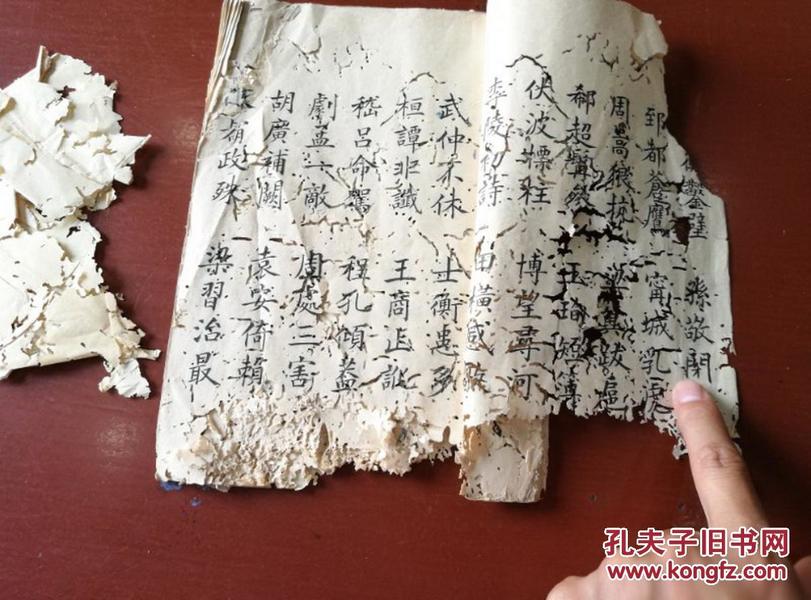 鑿壁 孫敬閉
郅都蒼鷹 甯城乳虎
周嵩狼抗 梁冀跋扈
郗超髯參 王珣短簿
伏波標柱 博望尋河
李陵初詩 田橫感歌
武仲不休 士衡患多
桓譚非讖 王商止訛
嵇呂命駕 程孔傾蓋
劇孟一敵 周處三害
胡廣補闕 袁安倚賴
霸政殊 梁習治最
孔夫子旧书网
www.kongfz.com